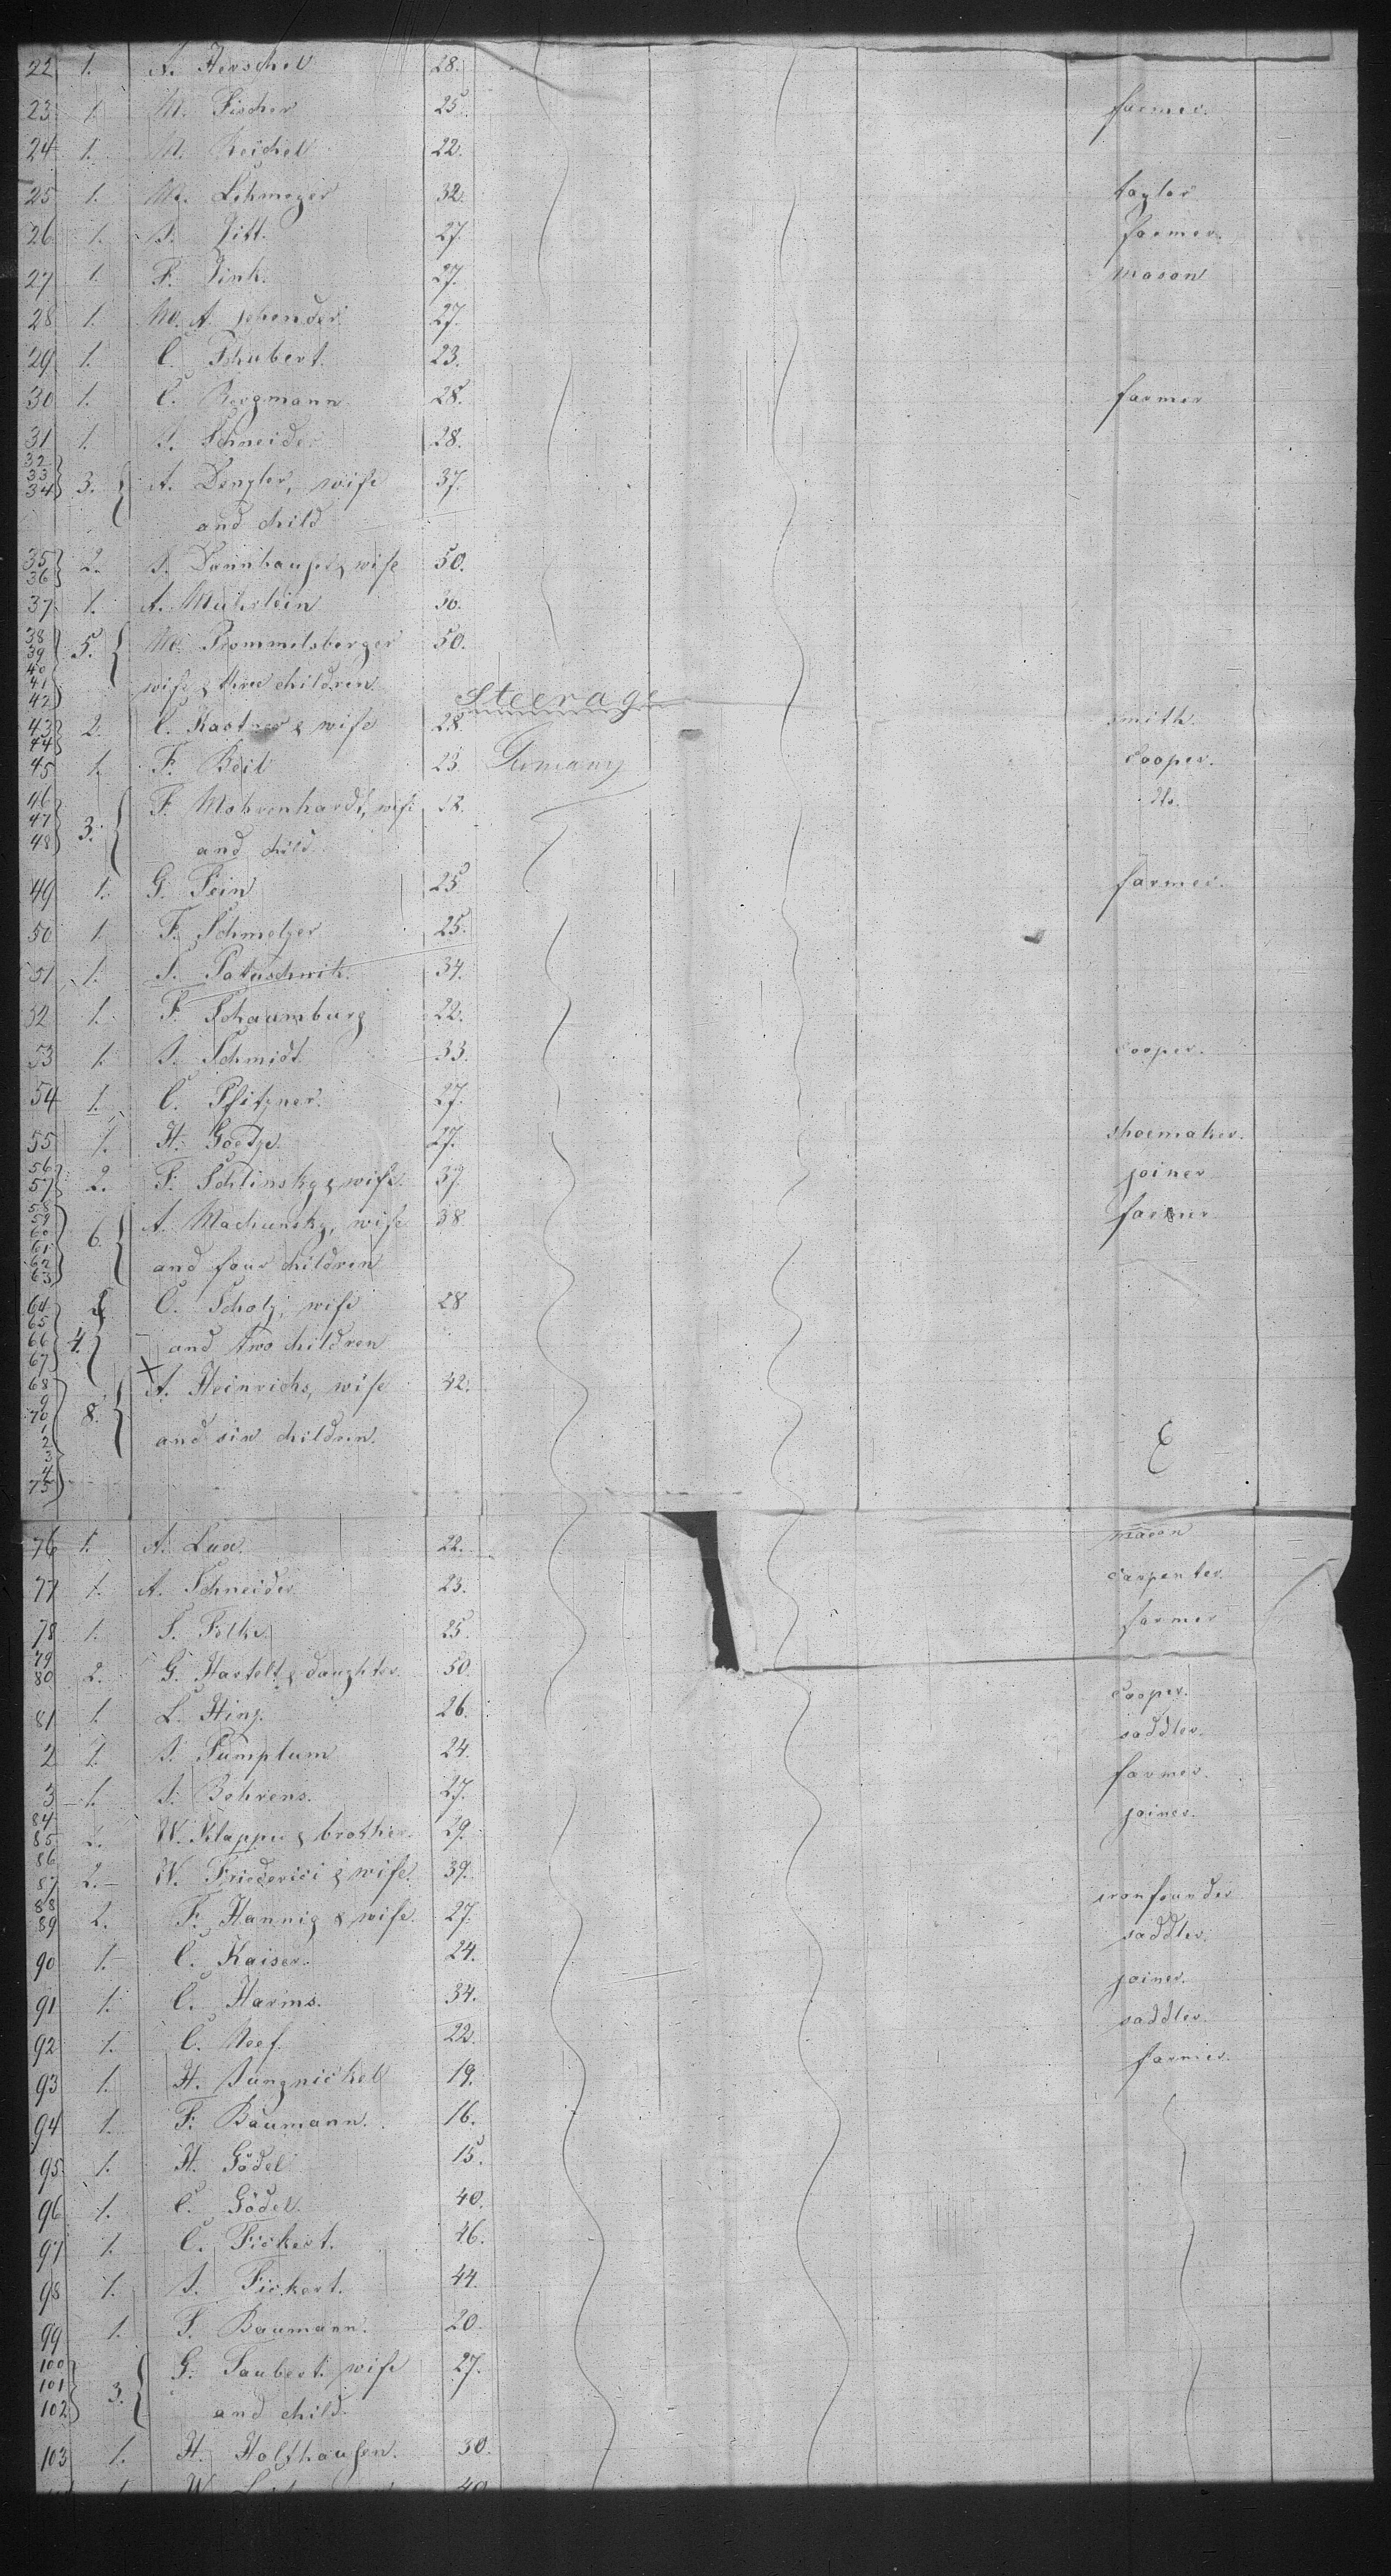 22 1. A. Herschel 28.
23 1. M. Fischer 25. farmer.
24 1. M. Reichel 22.
25 1. M. Lehmeyer 32. taylor
26 1. J. Zitt. 27. farmer
27 1. F. Zink. 27. mason
28 1. M. A. 27.
29 1. C. Schubert. 23.
30 1. C. Bergmann 28. farmer
31 1. J. Schneider 28.
32 33 34 3. A. Dengler, wife 37.
and child
35 36 2. J. Dannhauser & wife 50.
37 1. A. 30.
38 39 40 41 42 5. M. Rommelsberger 50.
wife & three children. Steerage
43 44 2. C. Kastner & wife 28. smith
45 1. F. Beil 23. Germany Cooper.
46 47 48 3. F. Mohrenhardt, wife do.
and child
49 1. G. Fein 25 farmer.
50 1. F. Schmelzer 25.
51 1. 34.
52 1. F. Schaumburg 22.
53 1. J. Schmidt 33. cooper.
54 1. C. Pfitzner. 27.
55 1. H. Goetze. 27. shoemaker.
56 57 2. F. Schlinsky & wife. 37. joiner
58 59 60 61 62 63 6. A. Machunsky, wife 38 farmer
and four children
64 65 66 67 4. C. Scholz, wife 28
and two children
68 9 70 1 2 3 4 75 8. X A. Heinrichs, wife 42.
and six children.
76 1. A. Lux. 22. mason
77 1. A. Schneider 23. carpenter
78 1. 25. farmer
79 80 2. G. Hartelt & daughter. 50.
81 1. L. Hinz. 26. Cooper.
2 1. J. Sumptum 24. saddler.
3 1. J. Behrens. 27. farmer.
84 85 2. W. Klappe & brother. 29. joiner.
86 87 2. W. Friederici & wife. 39.
88 89 2. F. Hannig & wife. 27. ironfounder
90 1. C. Kaiser. 24. saddler.
91 1. C. Harms. 34. joiner.
92 1. C. Neef. 22. saddler.
93 1. H. Jungnickel 19. farmer.
94 1. F. Baumann. 16.
95 1. H. Gödel 15.
96 1. C. Gödel. 40.
97 1. C. Fickert. 46.
98 1. J. Fickert. 44.
99 1. F. Baumann. 20.
100 101 102 3. G. Taubert. wife 27.
and child.
103 1. H. Holthausen. 30.
1. W. 40